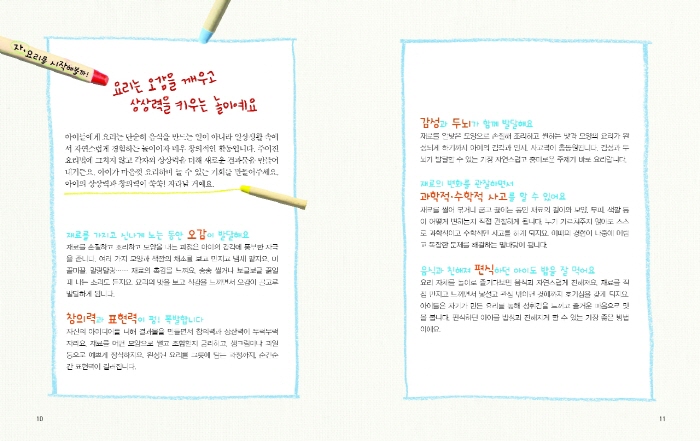 자, 요리를 시작해볼까!
요리는 오감을 깨우고
상상력을 키우는 놀이예요
아이들에게 요리는 단순히 음식을 만드는 일이 아니라 일상생활 속에
서 자연스럽게 경험하는 놀이이자 매우 창의적인 활동입니다. 주어진
요리법에 그치지 않고 각자의 상상력을 더해 새로운 결과물을 만들어
내기든요. 아이가 마음껏 요리하며 놀 수 있는 기회를 만들어주세요.
아이의 상상력과 창의력이 쑥쑥! 자라날 거예요.
재료를 가지고 신나게 노는 동안 오감이 발달해요
재료를 손질하고 조리하고 모양을 내는 과정은 아이의 감각에 풍부한 자극
을 줍니다. 여러 가지 모양과 색깔의 재료를 보고 만지고 냄새 맡지요. 미
끌미끌, 말랑말랑…… 재료의 촉감을 느껴요. 송송 썰거나 보글보글 끓일
때 나는 소리도 듣지요. 요리의 맛을 보고 식감을 느끼면서 오감이 골고루
발달하게 됩니다.
창의력과 표현력이 팡! 폭발합니다
자신의 아이디어를 더해 결과물을 만들면서 창의력과 상상력이 쑥쑥
자라요. 재료를 어떤 모양으로 썰고 조합할지 궁리하고, 생크림이나 과일
등으로 예쁘게 장식하지요. 완성된 요리를 그릇에 담는 과정까지, 순간순
간 표현력이 길러집니다.
10
감성과 두뇌가 함께 발달해요
재료를 알맞은 모양으로 손질해 조리하고 원하는 맛과 모양의 요리가 완
성되게 하기까지 아이의 감각과 인지, 사고력이 총동원됩니다. 감성과 두
뇌가 발달할 수 있는 가장 자연스럽고 흥미로운 주제가 바로 요리랍니다.
재료의 변화를 관찰하면서
과학적·수학적 사고를 할 수 있어요
재료를 썰어 무치거나 굽고 끓이는 동안 재료의 길이와 모양, 무게, 색깔 등
이 어떻게 변하는지 직접 관찰하게 됩니다. 누가 가르쳐주지 않아도 스스
로 과학적이고 수학적인 사고를 하게 되지요. 이때의 경험이 나중에 어렵
고 복잡한 문제를 해결하는 밑바탕이 됩니다.
음식과 친해져 편식하던 아이도 밥을 잘 먹어요
요리 자체를 놀이로 즐기다보면 음식과 자연스럽게 친해져요. 재료를 직
접 만지고 느끼면서 낯설고 관심 밖이던 것에까지 호기심을 갖게 되지요.
아이들은 자기가 만든 요리를 통해 성취감을 느끼고 즐거운 마음으로 맛
을 봅니다. 편식하던 아이를 밥상과 친해지게 할 수 있는 가장 좋은 방법
이에요.
11